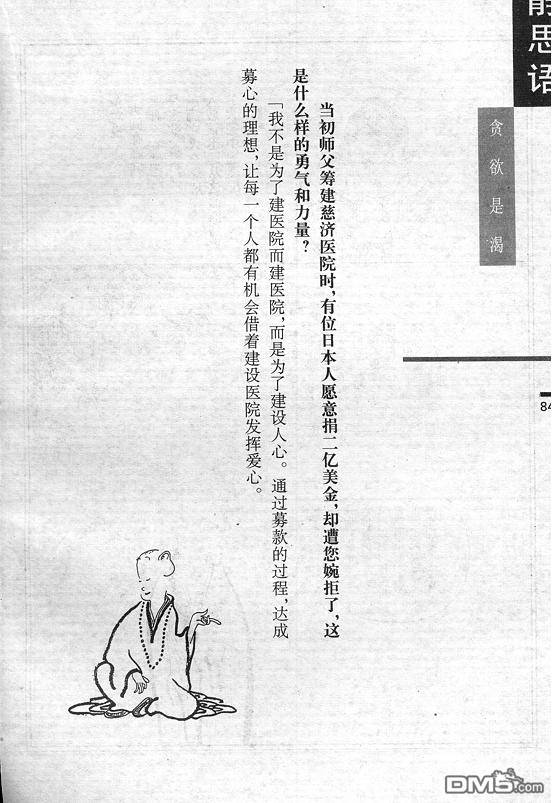 静思语
贪欲是渴
84
当初师父筹建慈济医院时，有位日本人愿意捐二亿美金，却遭您婉拒了，这
是什么样的勇气和力量？
「我不是为了建医院而建医院，而是为了建设人心。通过募款的过程，达成
募心的理想，让每一个人都有机会借着建设医院发挥爱心。
DM5.com